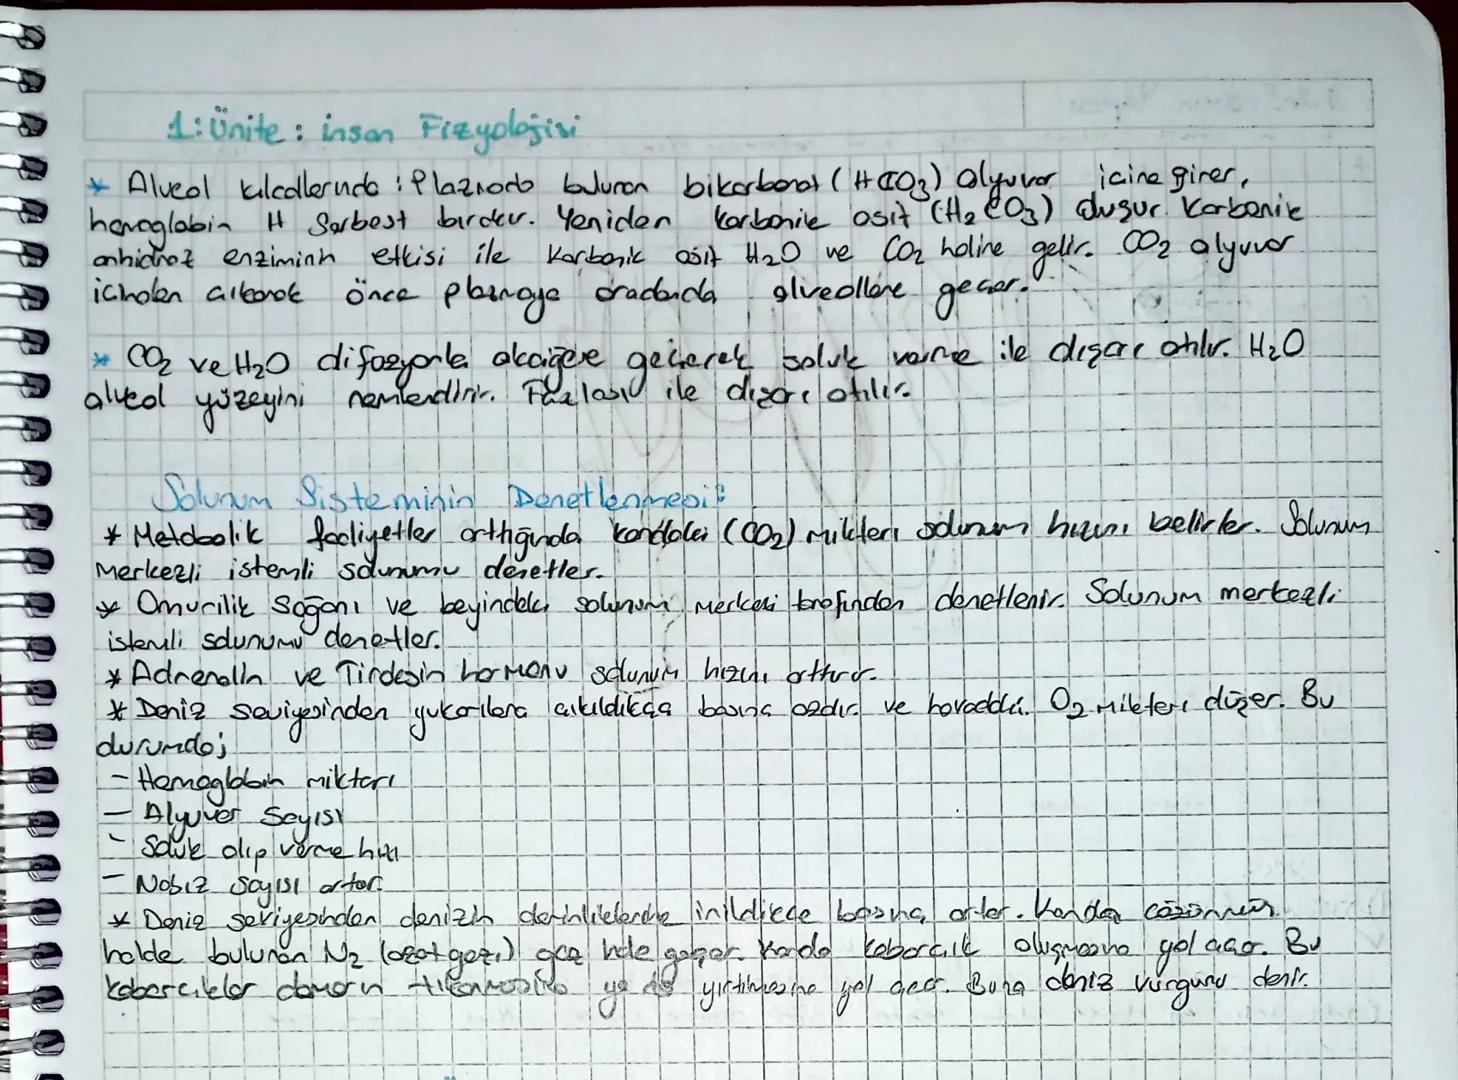 1: Ünite: insan Fizyolojisi
* Alveol kılcallarında: Plazmada bulunan bikarbonat (HCO3) alyuvar içine girer,
hemoglobin H Serbest bırakır. Yeniden karbonik asit (H2CO3) oluşur. Karbonik
anhidraz enziminin etkisi ile Karbonik asit H2O ve CO2 haline gelir. CO2 alyuvar
içinden çıkarak önce plazmaya oradanda alveollere geçer.
* CO2 ve H2O difüzyonla akciğere geçerek soluk verme ile dışarı atılır. H2O
alveol yüzeyini nemlendirir. Fazlası ile dışarı atılır.
Solunum Sisteminin Denetlenmesi:
* Metabolik faaliyetler arttığında kandaki (CO2) miktarı solunum hızını belirler. Solunum
Merkezli istemli solunumu denetler.
* Omurilik Soğanı ve beyindeki solunum merkezi tarafından denetlenir. Solunum merkezli
istemli solunumu denetler.
* Adrenalin ve Tiroksin hormonu solunum hızını arttırır.
* Deniz seviyesinden yukarılara çıkıldıkça basınç azalır ve havadaki O2 miktarı düşer. Bu
durumda;
- Hemoglobin miktarı
- Alyuvar Sayısı
- Soluk alıp verme hızı
- Nabız Sayısı artar.
* Deniz seviyesinden denizin derinliklerine inildikçe basınç artar. Kanda çözünmüş
halde bulunan N2 (azot gazı) gaz hale geçer. Kanda kabarcık oluşmasına yol açar. Bu
kabarcıklar damarın tıkanmasına ya da yırtılmasına yol açar. Buna deniz vurgunu denir.